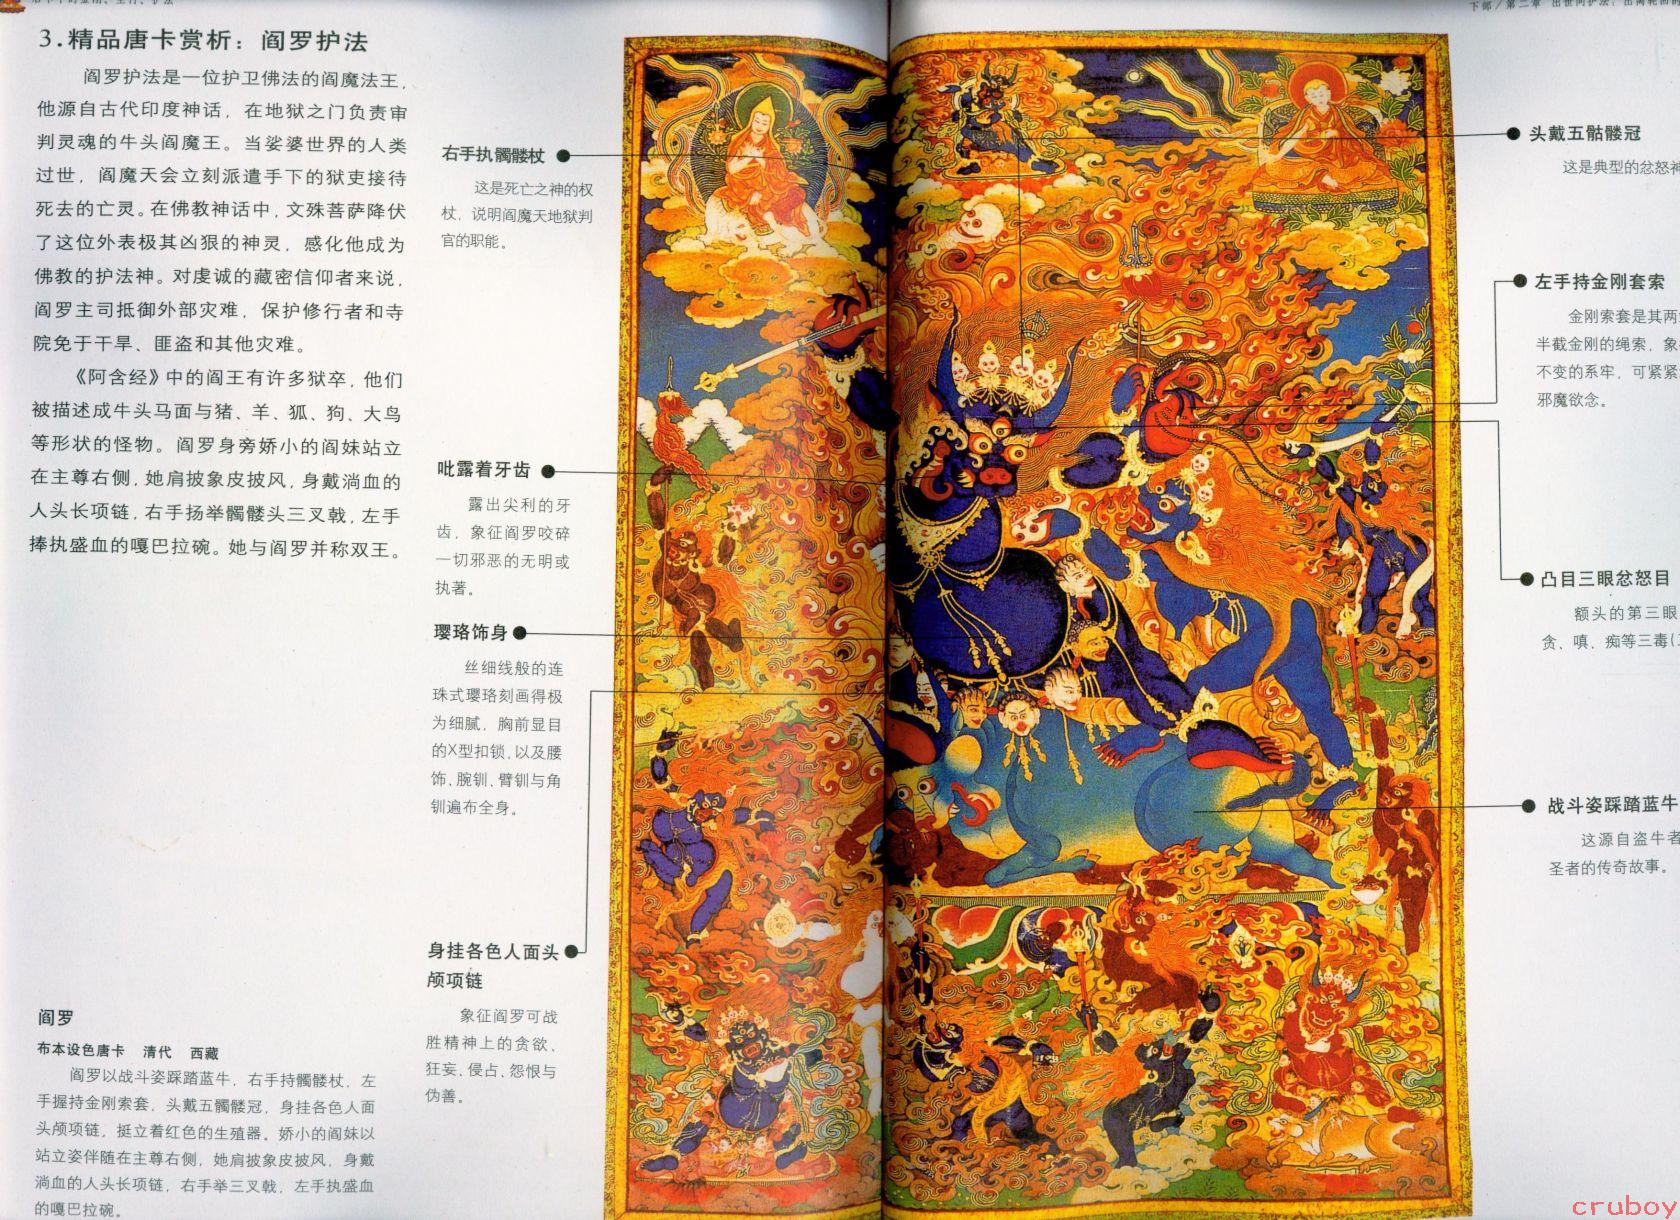 3.精品唐卡赏析：阎罗护法
阎罗护法是一位护卫佛法的阎魔法王，
他源自古代印度神话，在地狱之门负责审
判灵魂的牛头阎魔王。当娑婆世界的人类
过世，阎魔天会立刻派遣手下的狱吏接待
死去的亡灵。在佛教神话中，文殊菩萨降伏
了这位外表极其凶狠的神灵，感化他成为
佛教的护法神。对虔诚的藏密信仰者来说，
阎罗主司抵御外部灾难，保护修行者和寺
院免于干旱、匪盗和其他灾难。
《阿含经》中的阎王有许多狱卒，他们
被描述成牛头马面与猪、羊、狐、狗、大鸟
等形状的怪物。阎罗身旁娇小的阎妹站立
在主尊右侧，她肩披象皮披风，身戴淌血的
人头长项链，右手扬举髑髅头三叉戟，左手
捧执盛血的嘎巴拉碗。她与阎罗并称双王。
阎罗
布本设色唐卡 清代 西藏
阎罗以战斗姿踩踏蓝牛，右手持髑髅杖，左
手握持金刚索套，头戴五髑髅冠，身挂各色人面
头颅项链，挺立着红色的生殖器。娇小的阎妹以
站立姿伴随在主尊右侧，她肩披象皮披风，身戴
淌血的人头长项链，右手举三叉戟，左手执盛血
的嘎巴拉碗。
右手执髑髅杖
这是死亡之神的权
杖，说明阎魔天地狱判
官的职能。
吡露着牙齿
露出尖利的牙
齿，象征阎罗咬碎
一切邪恶的无明或
执著。
璎珞饰身
丝细线般的连
珠式璎珞刻画得极
为细腻，胸前显目
的X型扣锁，以及腰
饰、腕钏、臂钏与角
钏遍布全身。
身挂各色人面头
颅项链
象征阎罗可战
胜精神上的贪欲、
狂妄、侵占、怨恨与
伪善。
下部／第二章 出世间护法：出离轮回的
头戴五骷髅冠
这是典型的忿怒神
左手持金刚套索
金刚索套是其两
半截金刚的绳索，象
不变的系牢，可紧紧
邪魔欲念。
凸目三眼忿怒目
额头的第三眼
贪、嗔、痴等三毒(
战斗姿踩踏蓝牛
这源自盗牛者
圣者的传奇故事。
cruboy